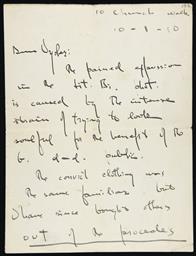 10 Church walk
10-8-50
Dear Vydes:
The pained expression
in the Lit. Bs. dct.
is caused by the intense
strain of trying to look
soulful for the benefit of the
G. d-d. public.
The convict clothing was
the same familiar but
I have since bought others
out of the proceedes